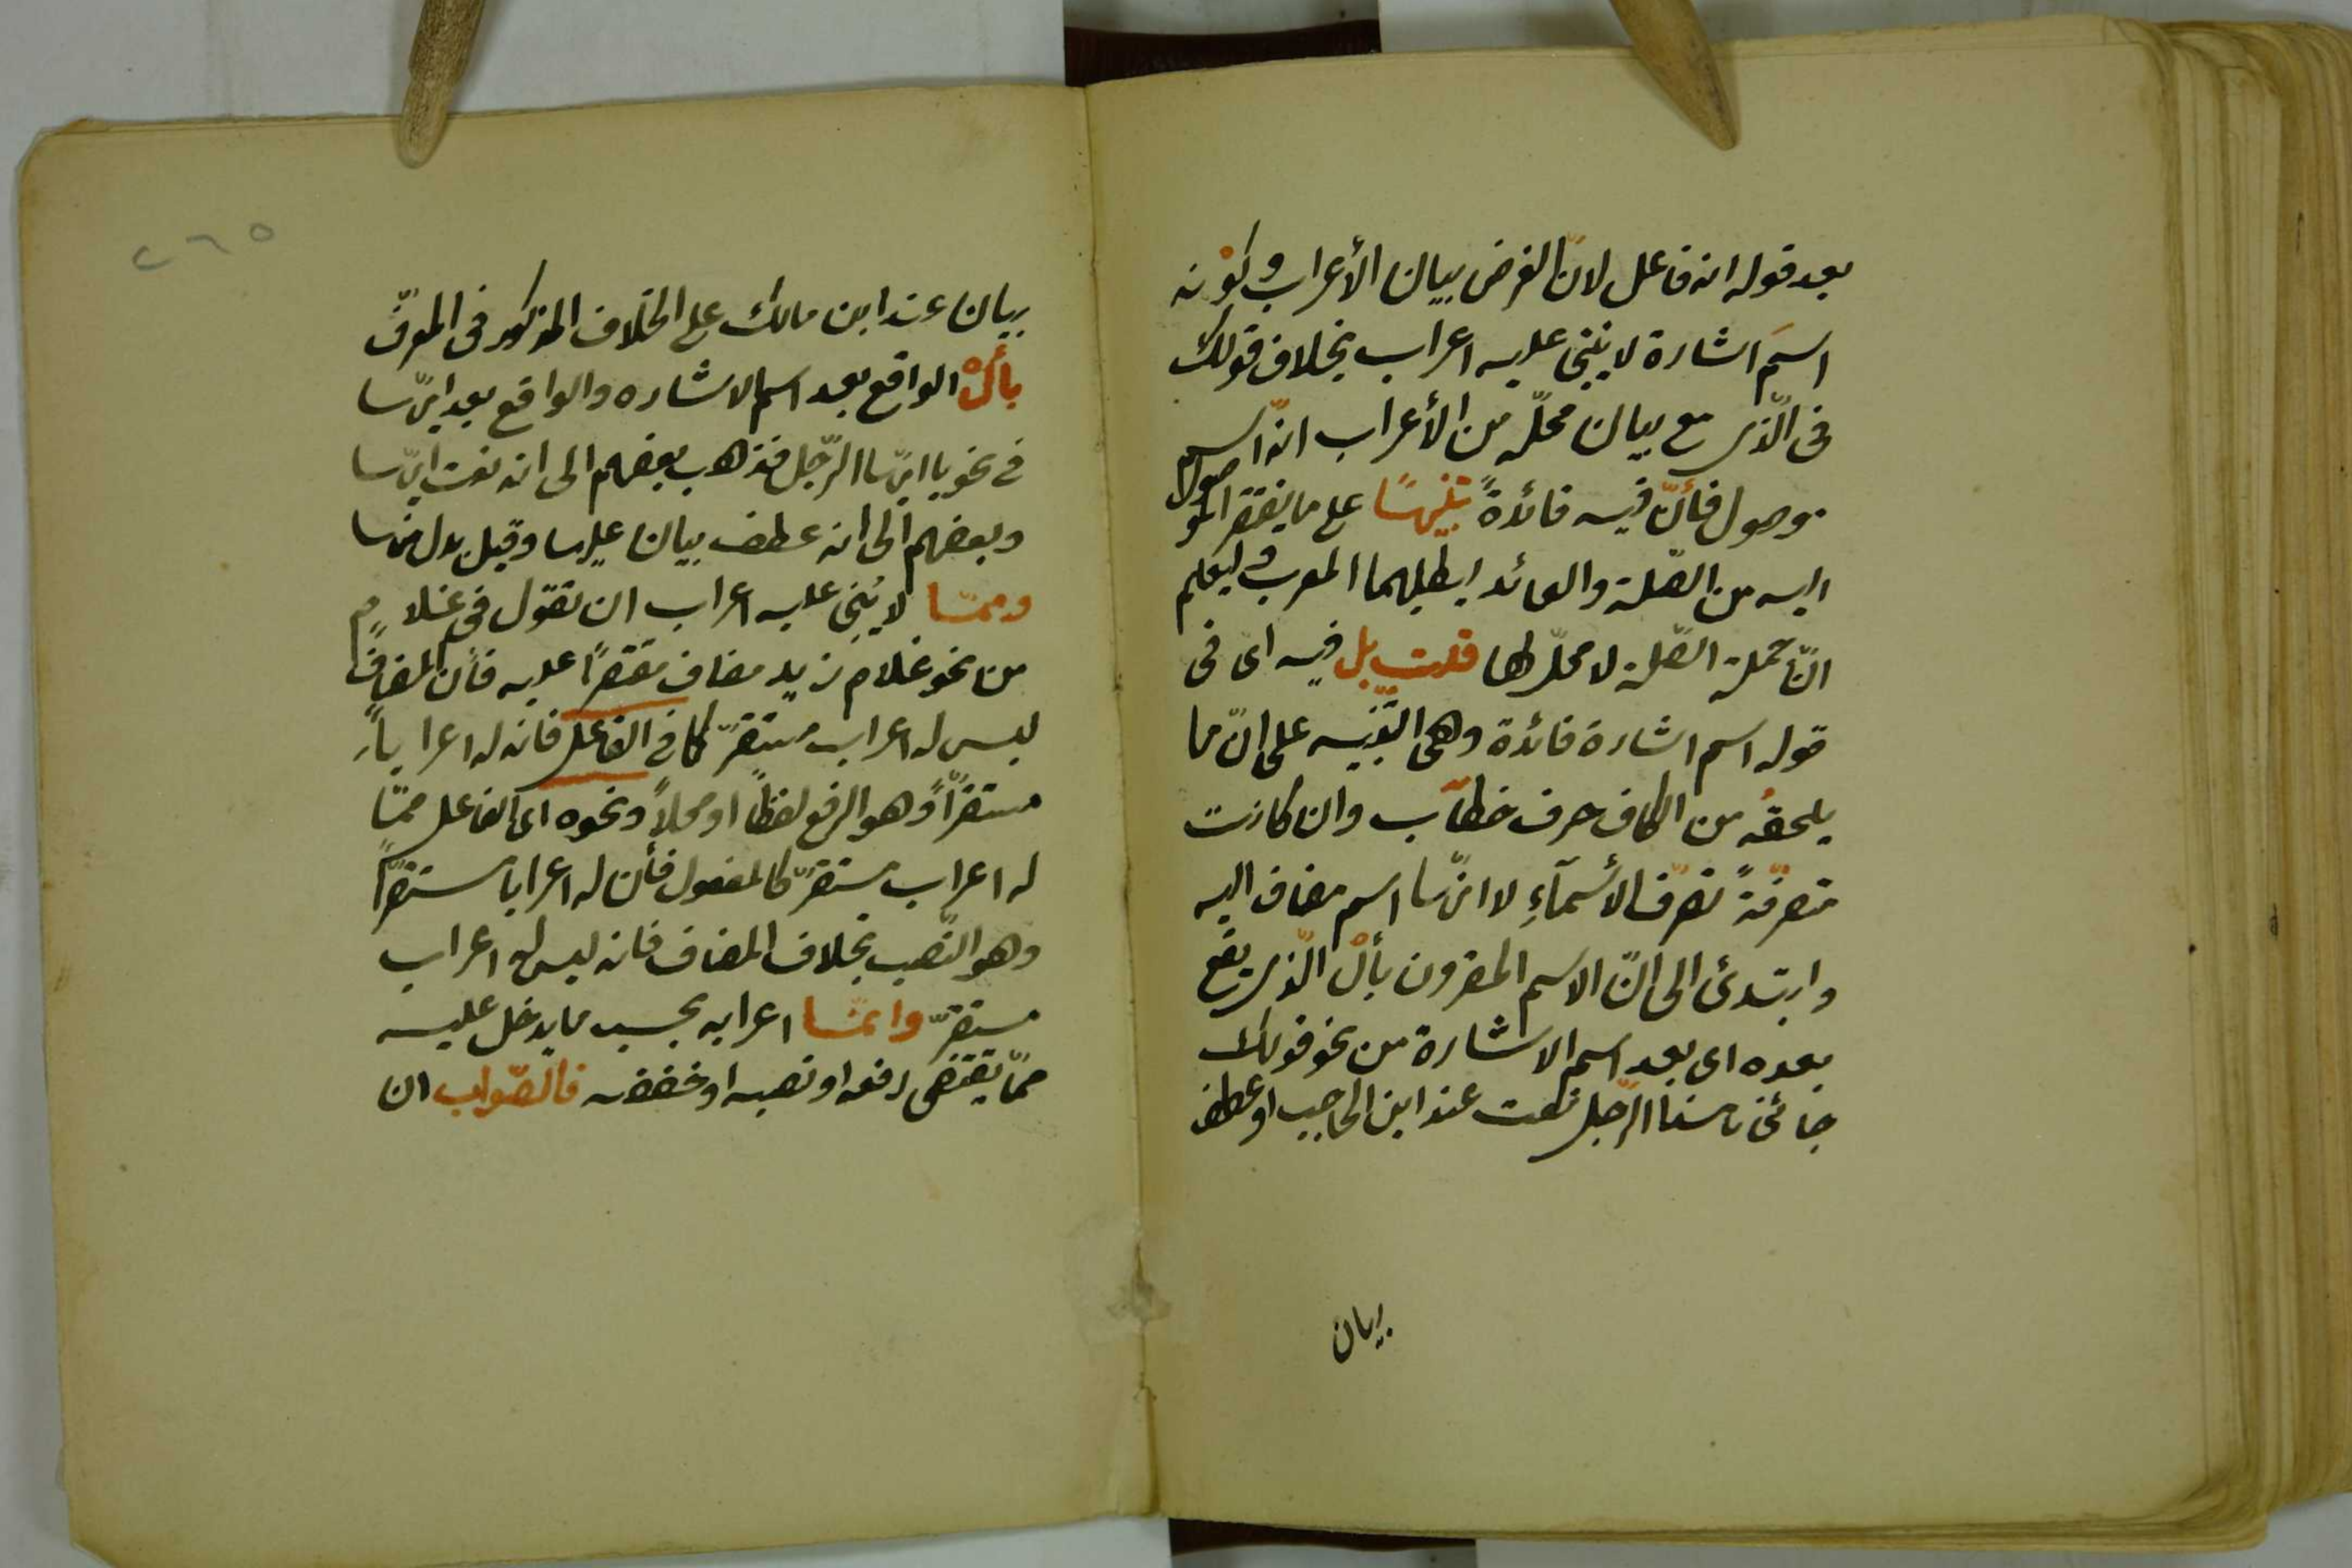 بعد قوله انه فاعل لانّ الغرض بيان الأعراب وكونه
اسمَ اشارة لا ينبنى عليه اعراب بخلاف قولك
فى الّذى مع بيان محلّه من الأعراب انّه اسم
موصول فأنّ فيه فائدةً تنبيهًا على ما يفتقر الموصول
اليه من الصّلة والعائد ليطلبهما المعرب وليعلم
انّ جملة الصّلة لا محلّ لها قلت بل فيه اى فى
قوله اسم اشارة فائدة وهى التّنبيه على انّ ما
يلحقه من الكاف حرف خطاب وان كانت
متصرّفةً تصرّف الأسمآءِ لا انّها اسم مضاف اليه
وارتدى الى انّ الاسم المقرون بأل الّذى يقع
بعده اى بعد اسم الاشارة من نحو قولك
جائنى هذا الرّجل نعت عند ابن الحاجب او عطف
بيان
٢٦٥
بيان عند ابن مالك على الخلاف المذكور فى المعرّف
بأل الواقع بعد اسم الاشاره والواقع بعد ايّها
فى نحو يا ايّها الرّجل فذهب بعضهم الى انه نعت ايّها
وبعضهم الى انه عطف بيان عليها وقيل بدل منها
وممّا لا يُبنى عليه اعراب ان تقول فى غلام
من نحو غلام زيد مضاف مقتصرًا عليه فأن المضاف
ليس له اعراب مستقرّ كما فى الفاعل فانه له اعرابًا
مستقرّاً وهو الرفع لفظاً او محلاً ونحوه اى الفاعل ممّا
له اعراب مستقرّ كالمفعول فأن له اعرابا مستقرّاً
وهو النّصب بخلاف المضاف فانه ليس له اعراب
مستقرّ وانمّا اعرابه بحسب ما يدخل عليه
ممّا يقتضى رفعه او نصبه او خفضه فالصّواب ان